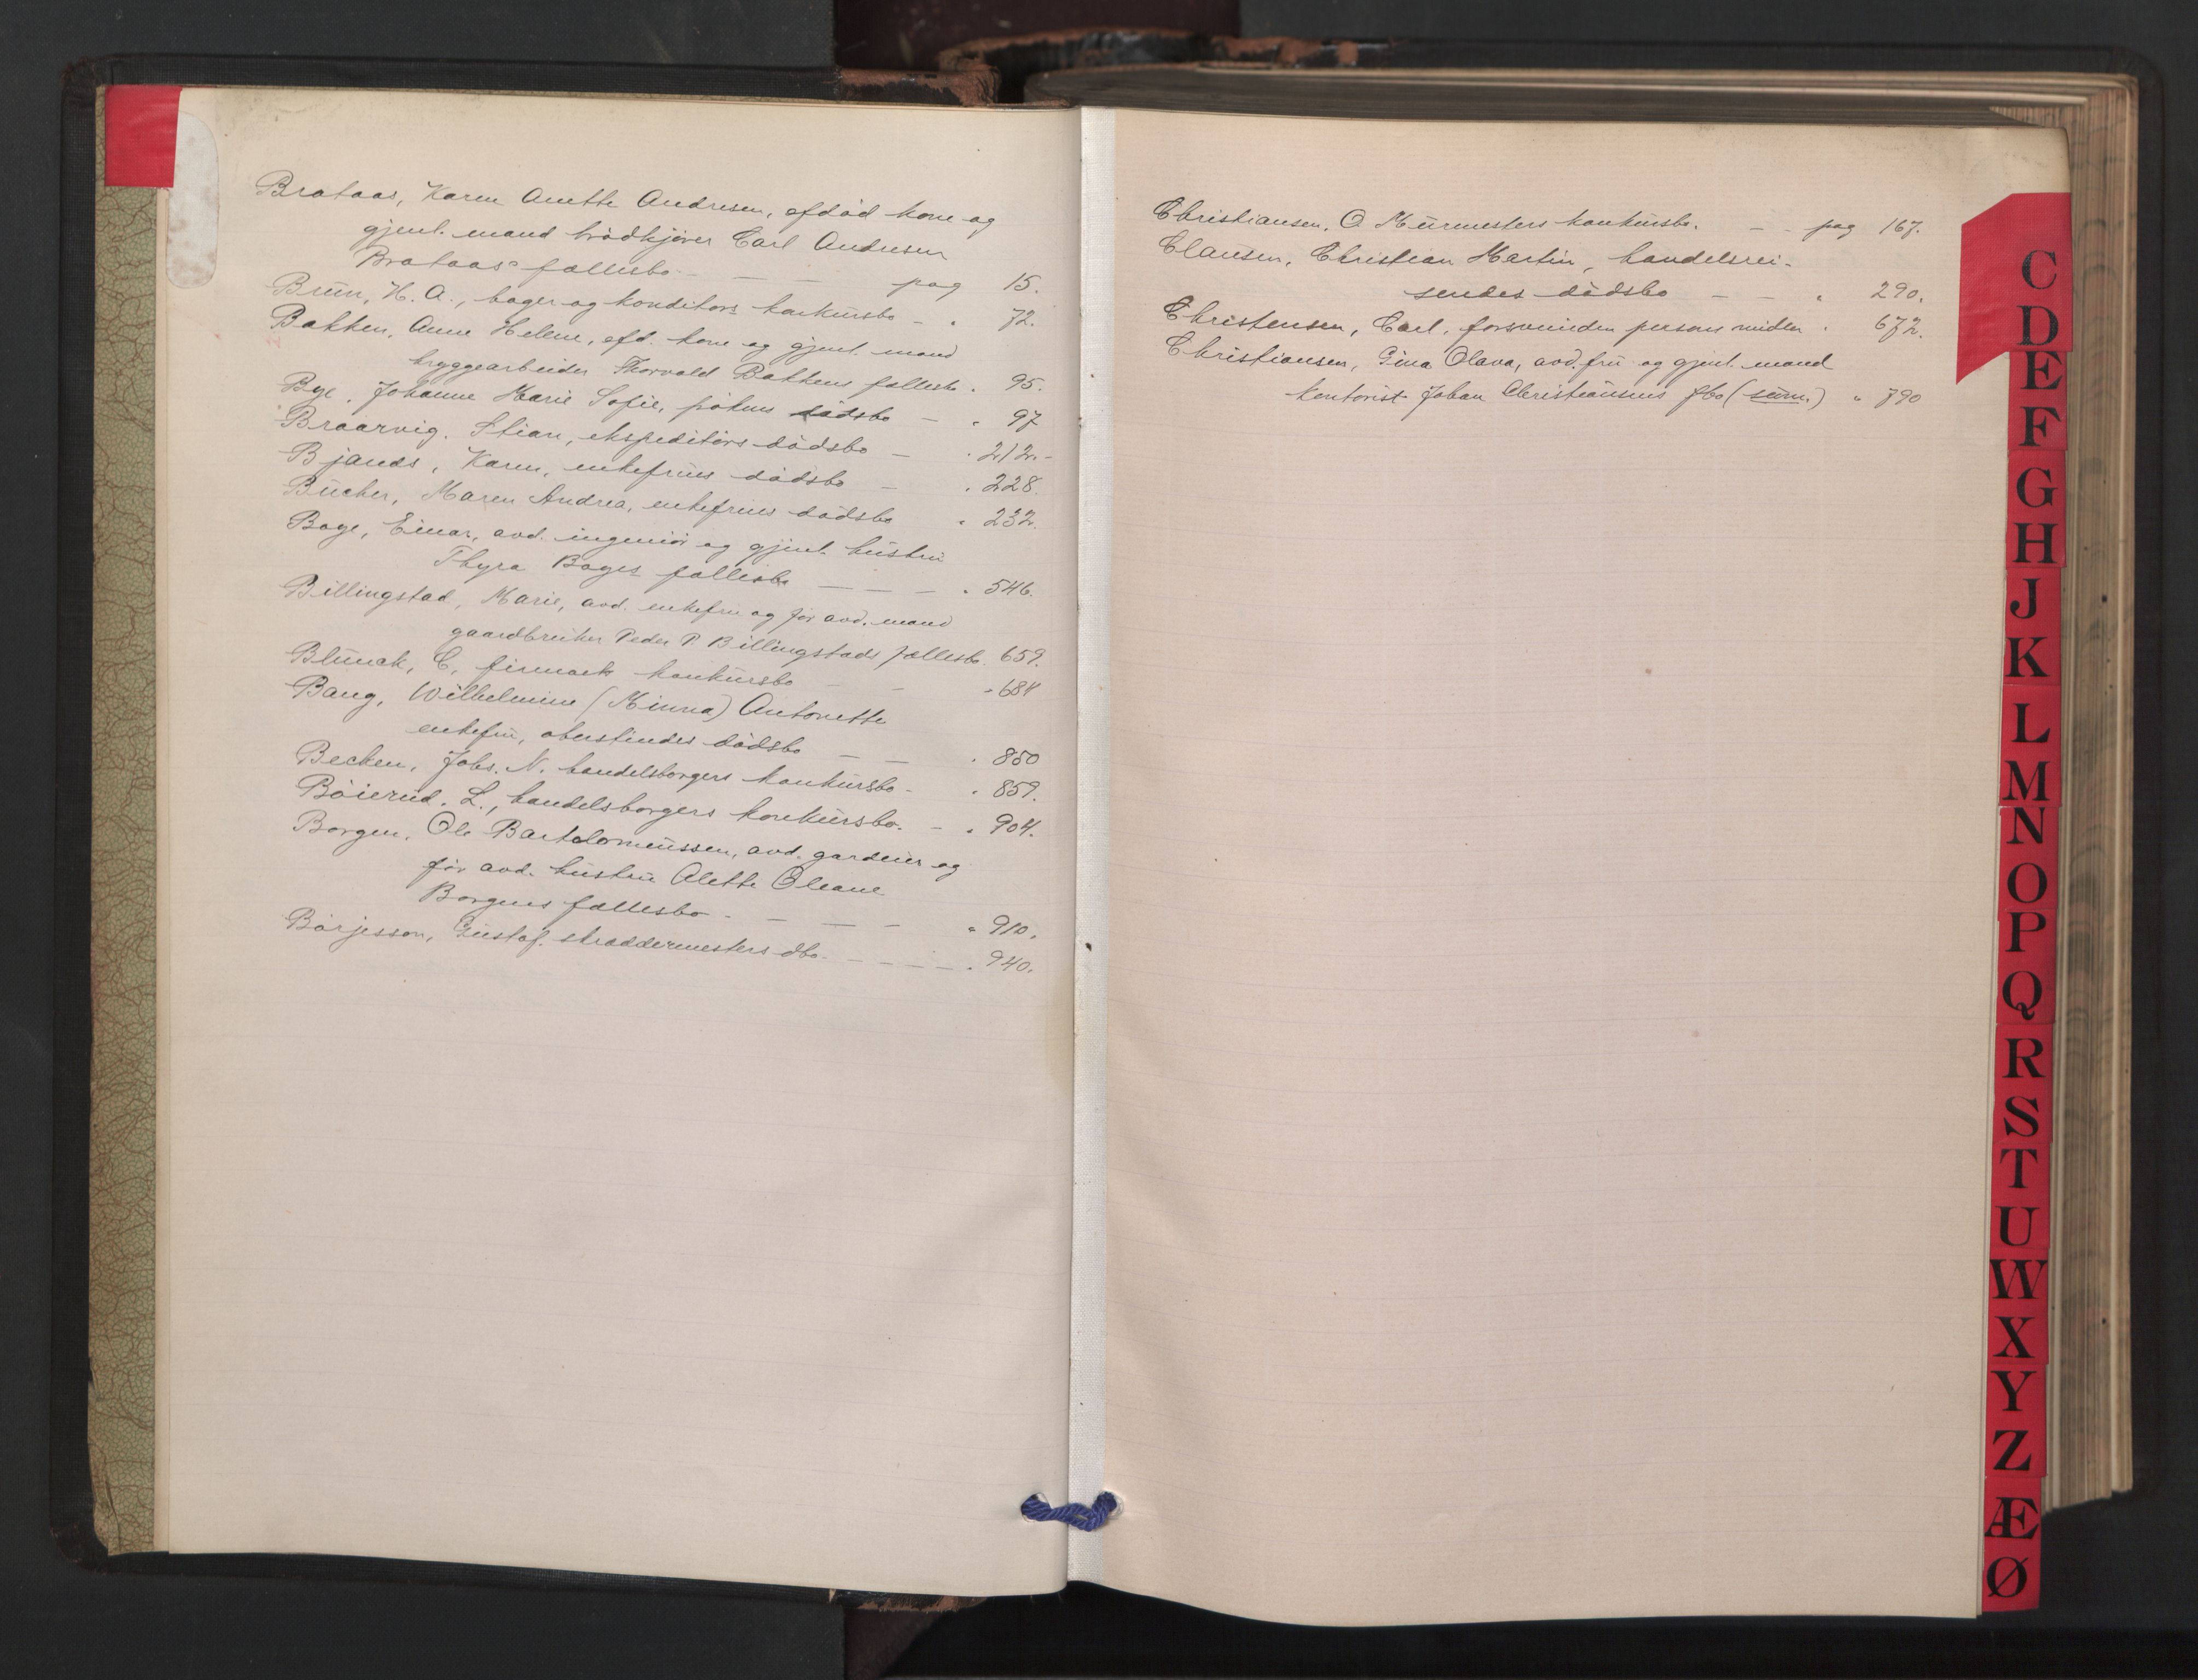 Brataas, Karen Anette Andresen, efdød kone og
gjenl. mand brødkjører Carl Andresen
Brataas' fællesbo - — — pag 15.
Brun, H. A., bager og konditors konkursbo - " 72.
Bakken, Anne Helene, efd. kone og gjenl. mand
bryggearbeider Thorvald Bakkens fællesbo . 95.
Bye, Johanne Marie Sofie, frøkens dødsbo — " 97
Braarvig, Stian, ekspeditørs dødsbo — " 212.-
Bjands, Karen, enkefrues dødsbo — " 228.
Bucher, Maren Andrea, enkefrues dødsbo " 232.
Boge, Einar, avd. ingeniør og gjenl. hustru
Thyra Boges fællesbo — — — " 546.
Billingstad, Marie, avd. enkefru og før avd. mand
gaardbruker Peder P. Billingstads fællesbo. 659.
Blunck, C, firmaets konkursbo - - " 684
Bang, Wilhelmine (Minna) Antonette
enkefru, oberstindes dødsbo — — " 850
Becken, Johs. N. handelsborgers konkursbo - " 859.
Bøierud, L., handelsborgers konkursbo. - " 904.
Borgen, Ole Bartolomeussen, avd. gardeier og
før avd. hustru Alette Oleane
Borgens fællesbo - — — - " 910.
Börjesson, Gustaf, skræddermesters dbo. - - - - " 940.
Christiansen, O Murmesters konkursbo. — - pag 167.
Clausen, Christian Martin, handelsrei-
sendes dødsbo — — " 290.
Christensen, Carl, forsvunden persons midler " 672.
Christiansen, Gina Olava, avd. fru og gjenl. mand
kontorist Johan Christiansens fbo (sum.) " 790
C
D
E
F
G
H
J
K
L
M
N
O
P
Q
R
S
T
U
W
X
Y
Z
Æ
Ø